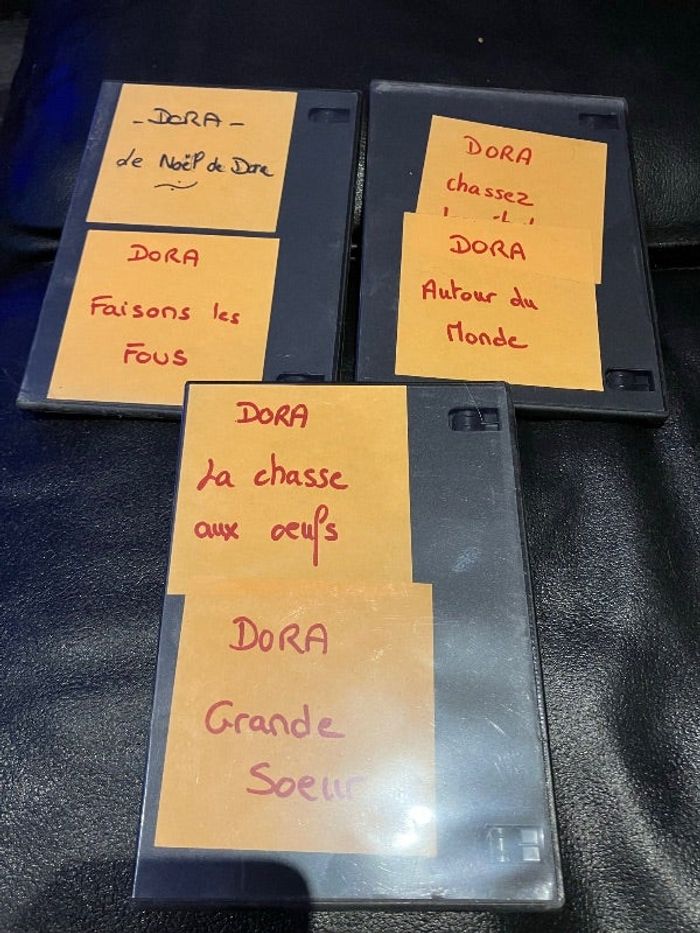 - DORA -
de Noël de Dora
DORA
Faisons les
Fous
DORA
chassez
DORA
Autour du
Monde
DORA
La chasse
aux oeufs
DORA
Grande
Soeur